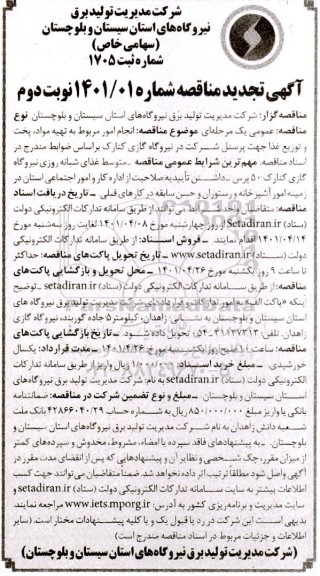 شرکت مدیریت تولید برق
نیروگاه‌های استان سیستان و بلوچستان
(سهامی خاص)
شماره ثبت ۱۷۰۵
آگهی تجدید مناقصه شماره ۱۴۰۱/۰۱ نوبت دوم
مناقصه گزار: شرکت مدیریت تولید برق نیروگاه‌های استان سیستان و بلوچستان نوع
مناقصه: عمومی یک مرحله‌ای موضوع مناقصه: انجام امور مربوط به تهیه مواد، پخت
و توزیع غذا جهت پرسنل شرکت در نیروگاه گازی کنارک براساس ضوابط مندرج در
اسناد مناقصه. مهم‌ترین شرایط عمومی مناقصه - متوسط غذای شبانه روزی نیروگاه
گازی کنارک ۵۰ پرس - داشتن تأییدیه صلاحیت از اداره کار و امور اجتماعی استان در
زمینه امور آشپزخانه و رستوران و حسن سابقه در کارهای قبلی - تاریخ دریافت اسناد
مناقصه: متقاضیان واجد شرایط می توانند از طریق سامانه تدارکات الکترونیکی دولت
(ستاد) Setadiran.ir از روز چهارشنبه مورخ ۱۴۰۱/۰۴/۰۸ لغایت روز سه‌شنبه مورخ
۱۴۰۱/۰۴/۱۴ اقدام نمایند - فروش اسناد: از طریق سامانه تدارکات الکترونیکی
دولت (ستاد) www.setadiran.ir - تاریخ تحویل پاکت‌های مناقصه: حداکثر
تا ساعت ۹ روز یکشنبه مورخ ۱۴۰۱/۰۴/۲۶ - محل تحویل و بازگشایی پاکت‌های
مناقصه: از طریق سامانه تدارکات الکترونیکی دولت (ستاد) setadiran.ir - توضیح
اینکه «پاکت الف» به امور تدارکات و قراردادهای شرکت مدیریت تولید برق نیروگاه های
استان سیستان و بلوچستان به نشانی: زاهدان، کیلومتر ۵ جاده گوربند، نیروگاه گازی
زاهدان، تلفن: ۳۱۱۳۷۳۱۳-۰۵۴ تحویل داده شود - تاریخ بازگشایی پاکت‌های
مناقصه: ساعت ۱۰ صبح روز یکشنبه مورخ ۱۴۰۱/۰۴/۲۶ - مدت قرارداد: یکسال
خورشیدی. - مبلغ خرید اسناد: ریال واریز از طریق سامانه تدارکات
الکترونیکی دولت (ستاد) setadiran.ir به نام: شرکت مدیریت تولید برق نیروگاه‌های
استان سیستان و بلوچستان - مبلغ و نوع تضمین شرکت در مناقصه: ضمانتنامه
بانکی یا واریز مبلغ ۸۵۰/۰۰۰/۰۰۰ ریال به شماره حساب ۴۲۸۶۶۰۴۰/۲۹ بانک ملت
شعبه دانش زاهدان به نام شرکت مدیریت تولید برق نیروگاه های استان سیستان و
بلوچستان. - به پیشنهادهای فاقد سپرده یا امضاء، مشروط، مخدوش و سپرده‌های کمتر
از میزان مقرر، چک شخصی و نظایر آن و پیشنهادهایی که پس از انقضای مدت مقرر در
آگهی واصل شود مطلقا ترتیب اثر داده نخواهد شد. ضمنا متقاضیان می‌توانند جهت کسب
اطلاعات بیشتر به سایت سامانه تدارکات الکترونیکی دولت (ستاد) setadiran.ir و
سایت مدیریت و برنامه‌ریزی کشور به آدرس: www.iets.mporg.ir مراجعه نمایند
بدیهی است این شرکت در رد یا قبول یک و یا کلیه پیشنهادات مختار است. (سایر
اطلاعات و جزئیات مربوط در اسناد مناقصه مندرج است)
(شرکت مدیریت تولید برق نیروگاه‌های استان سیستان و بلوچستان)